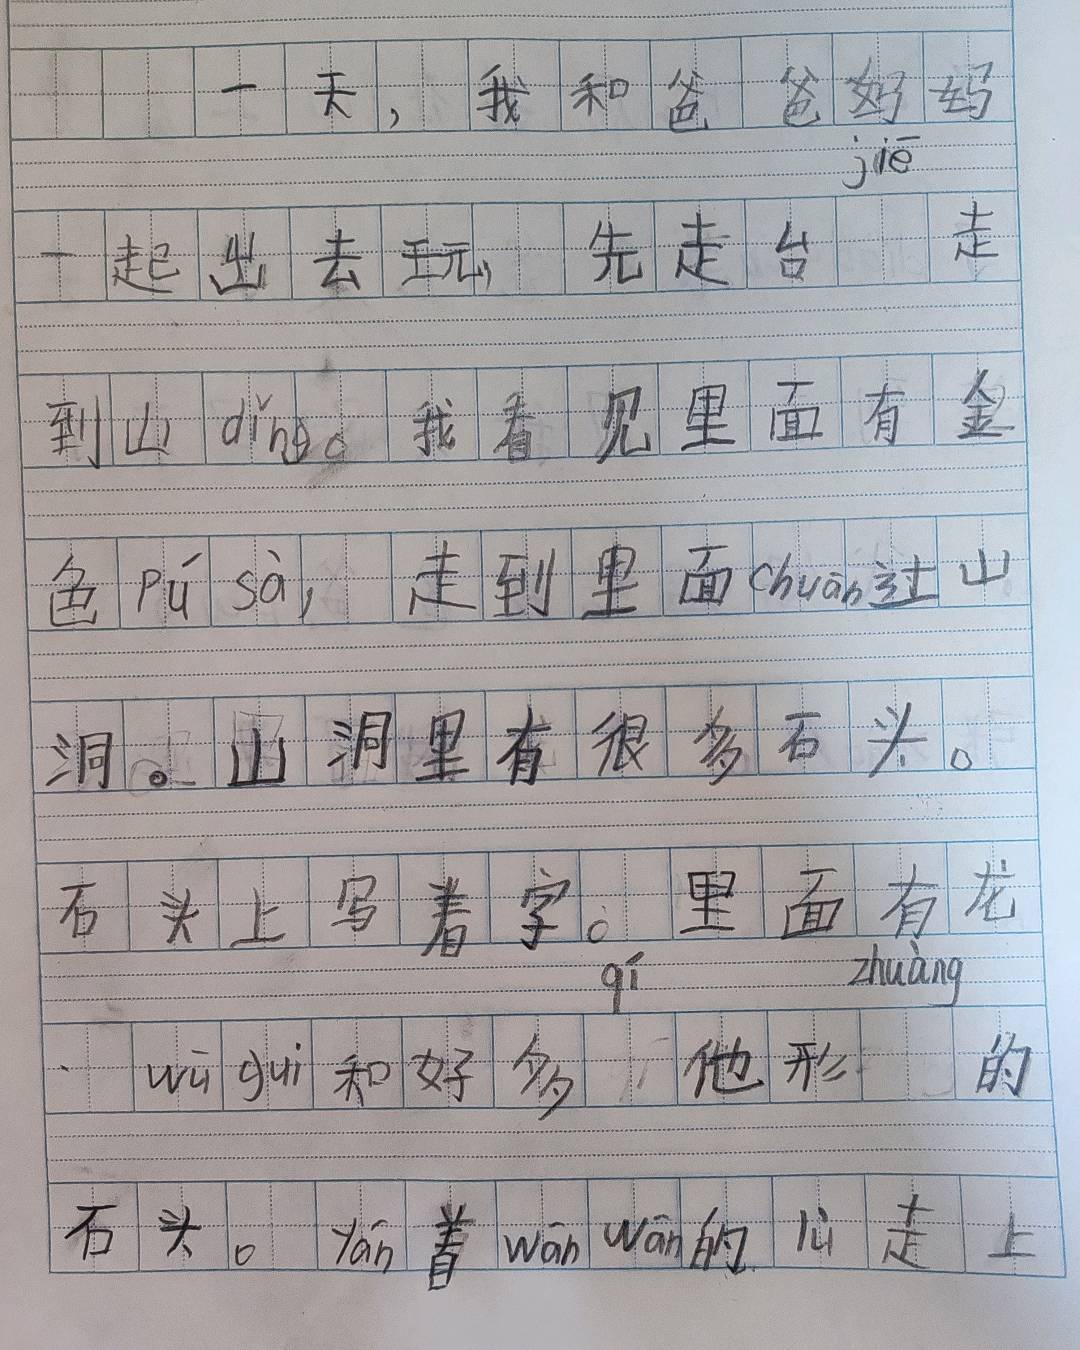 一天，我和爸爸妈妈
jiē
一起出去玩，先走台 走
到山dǐng。我看见里面有金
色pú sà，走到里面chuān过山
洞。山洞里有很多石头。
石头上写着字。里面有龙
qí zhuàng
、wū gui和好多 他形 的
石头。yán着wān wān的lù走上